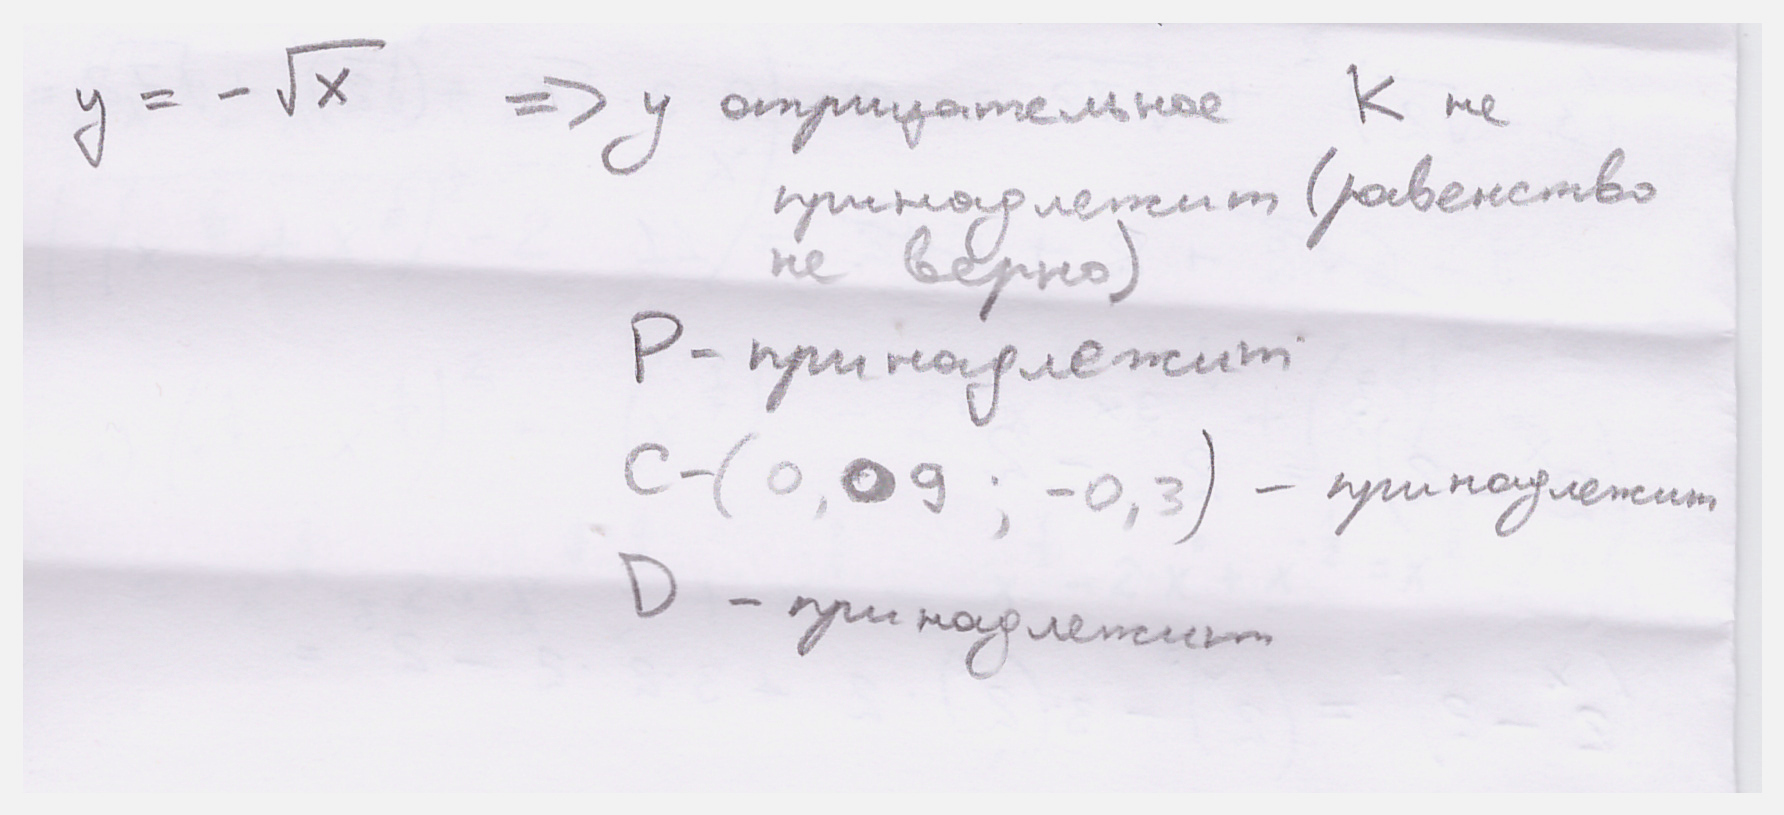 y = -√x => y отрицательное K не
принадлежит (равенство
не верно)
P- принадлежит
C-(0,09 ; -0,3) - принадлежит
D - принадлежит